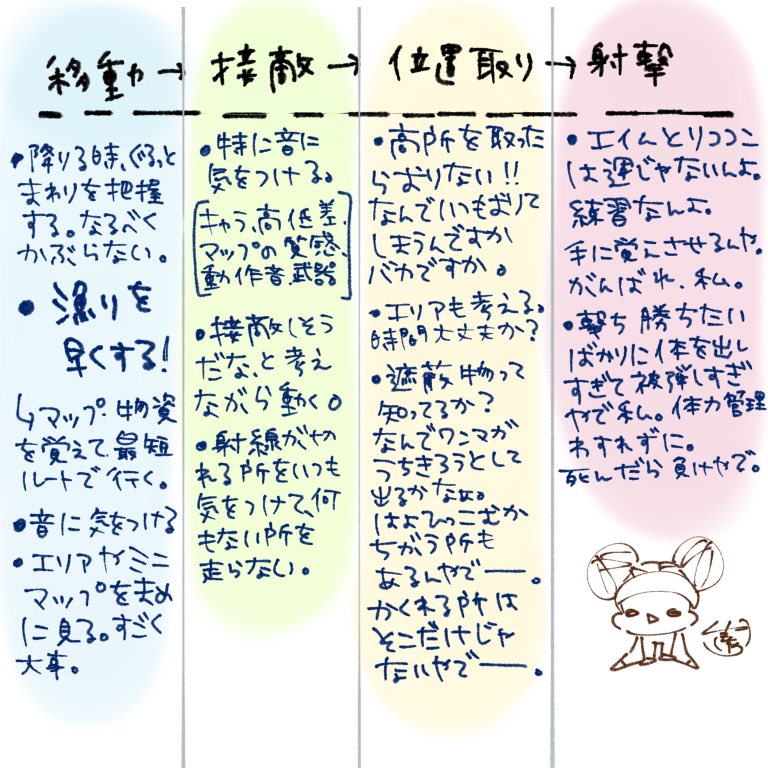 移動→接敵→位置取り→射撃
・降りる時、ぐるっと
まわりを把握
する。なるべく
かぶらない。
・漁りを
早くする!
↳マップ・物資
を覚えて、最短
ルートで行く。
・音に気をつける
・エリアやミニ
マップをまめ
に見る。すごく
大事。
・特に音に
気をつける。
[キャラ、高低差、
マップの質感、
動作音、武器]
・接敵しそう
だな、と考え
ながら動く。
・射線がや
れる所をいつも
気をつけて、何
もない所を
走らない。
・高所を取った
らおりない!!
なんでいつもおりて
しまうんですか
バカですか。
・エリアも考える。
時間大丈夫か?
・遮蔽物って
知ってるか?
なんでワンマガ
うちきろうとして
出るかなぁ。
はよひっこむか
ちがう所も
あるんやでー。
かくれる所は
そこだけじゃ
ないやでー。
・エイムとリココン
は運じゃないんよ。
練習なんよ。
手に覚えさせるんや。
がんばれ、私。
・撃ち勝ちたい
ばかりに体を出し
すぎて被弾しすぎ
やで私。体力管理
わすれずに。
死んだら負けやで。